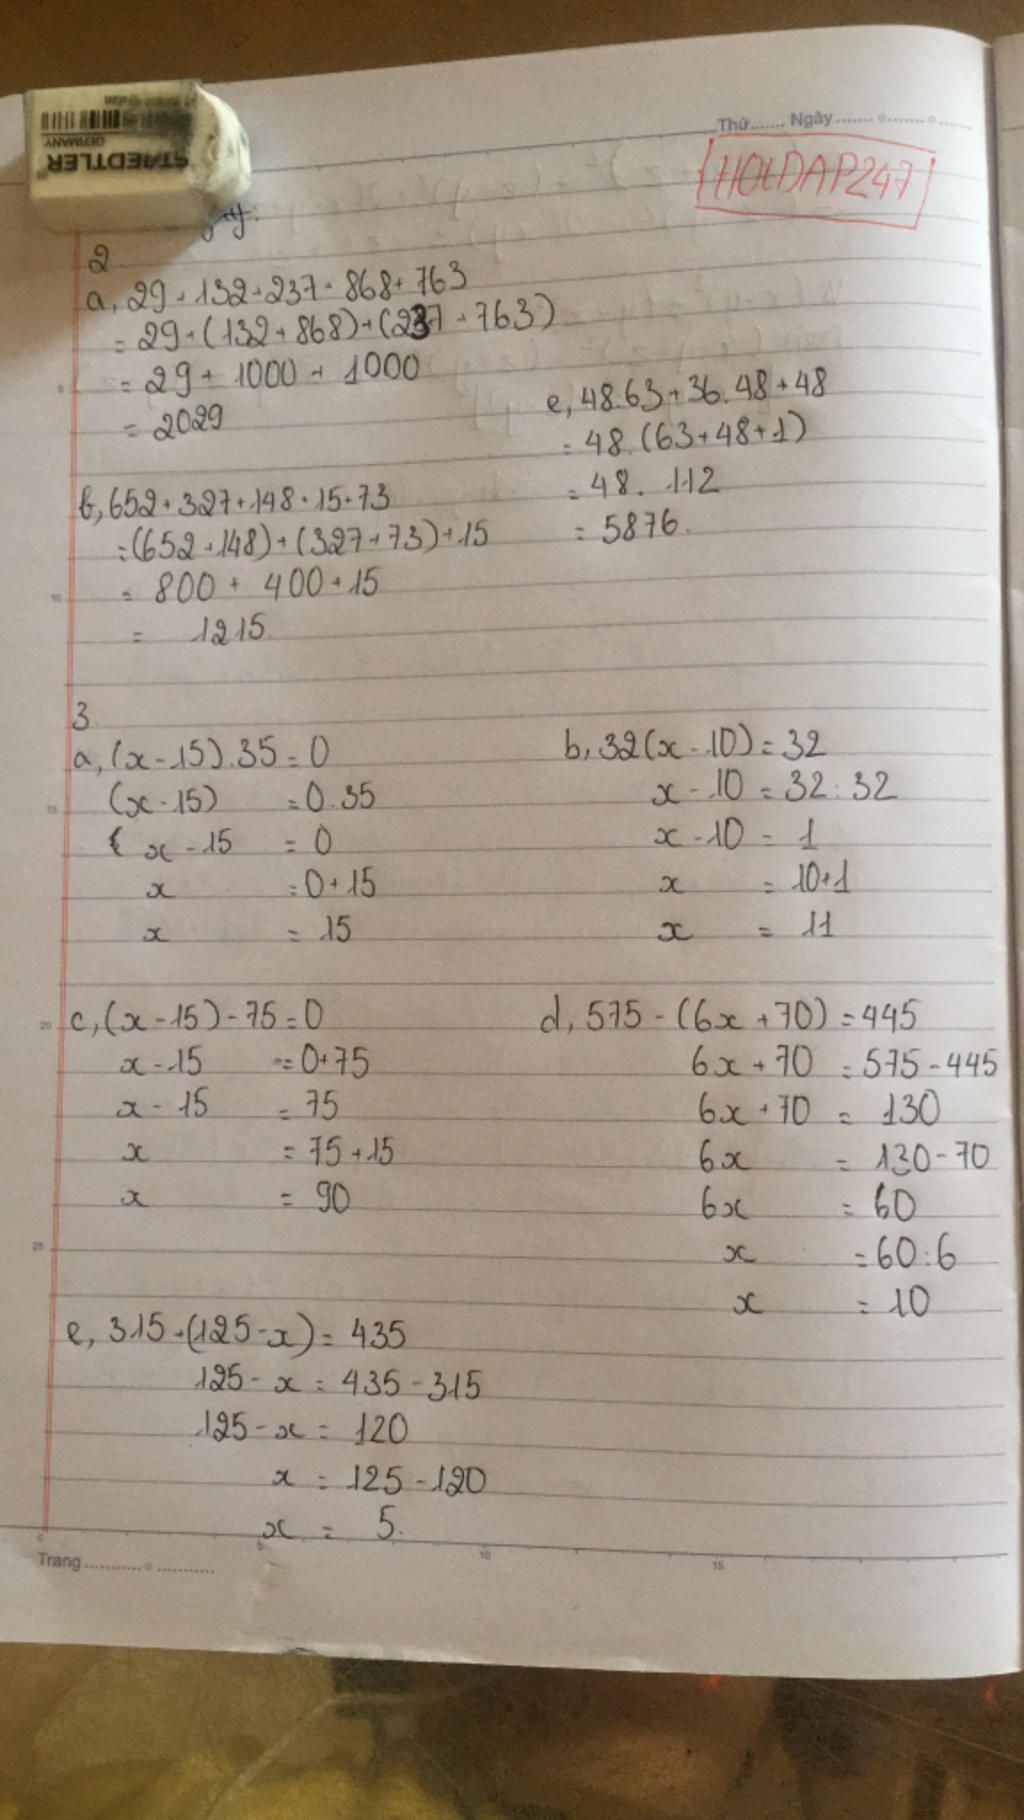 STAEDTLER
GERMANY
Thứ....... Ngày
HOLDAP247
2
a, 29+132+237+868+763
= 29+(132+868)+(237+763)
= 29+1000+1000
= 2029
b, 652+327+148+15+73
=(652+148)+(327+73)+15
= 800+400+15
= 1215
e, 48.63+36.48+48
= 48.(63+48+1)
= 48. 112
= 5876.
3
a, (x-15).35=0
(x-15) =0.35
x-15 = 0
x =0+15
x = 15
b, 32(x-10)=32
x-10 = 32:32
x-10 = 1
x = 10+1
x = 11
c, (x-15)-75=0
x-15 =0+75
x-15 = 75
x = 75+15
x = 90
d, 575-(6x+70)=445
6x+70 = 575-445
6x+70 = 130
6x = 130-70
6x = 60
x = 60:6
x = 10
e, 315+(125-x)= 435
125-x = 435-315
125-x = 120
x = 125-120
x = 5.
Trang
5
10
15
20
25
0
5
10
15